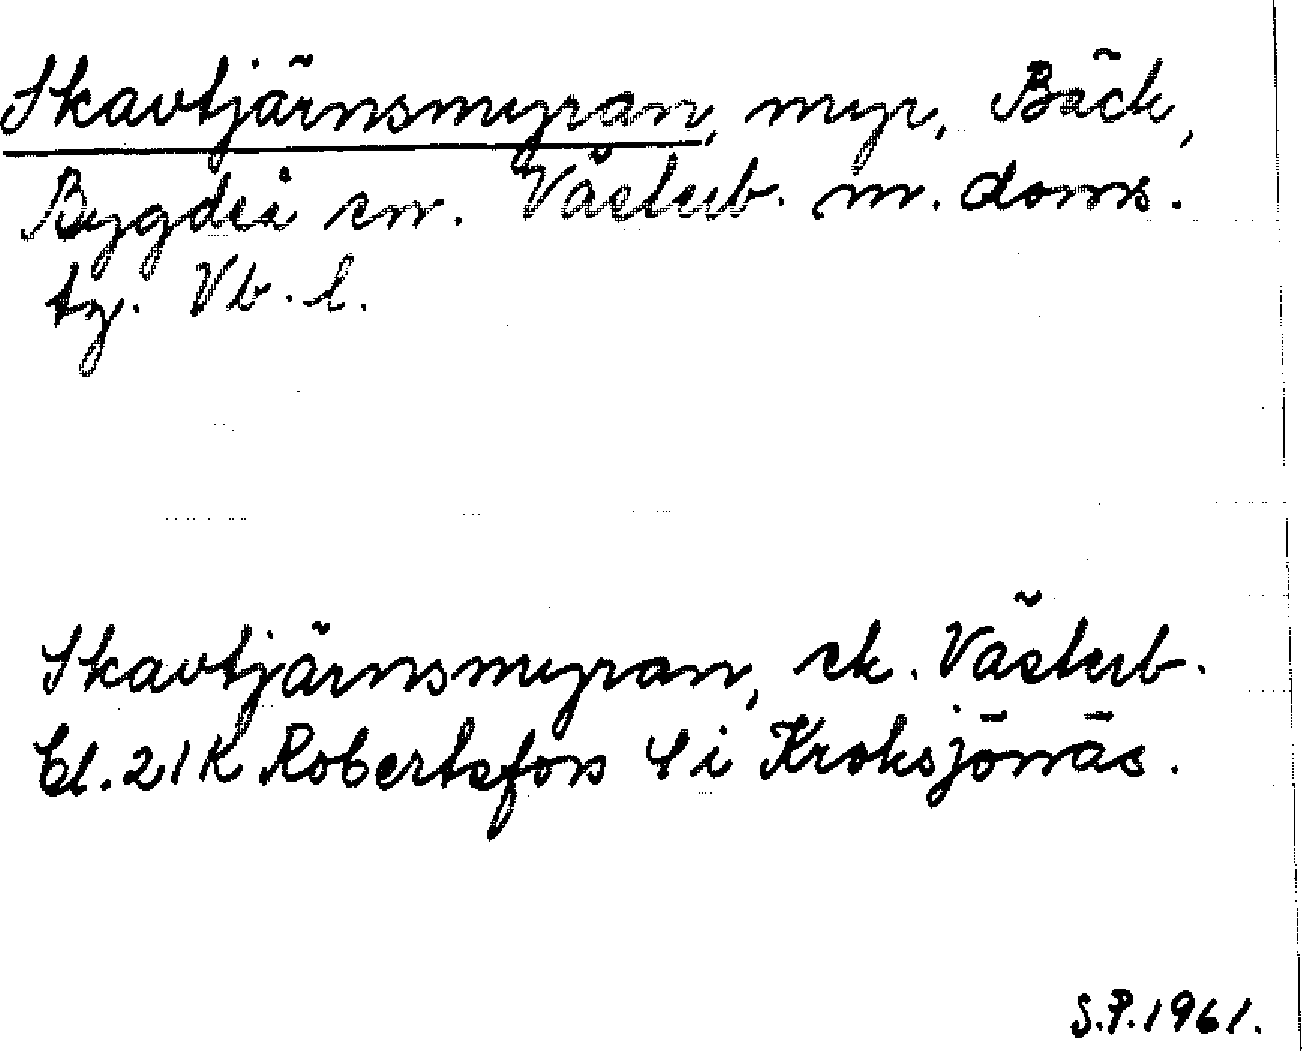 Skavtjärnsmyran, myr, Bäck,
Bygdeå sn. Västerb. m. doms.
tg. Vb. l.
Skavtjärnsmyran, ek. Västerb.
bl. 21K Robertsfors S i Kroksjönäs.
S.P. 1961.